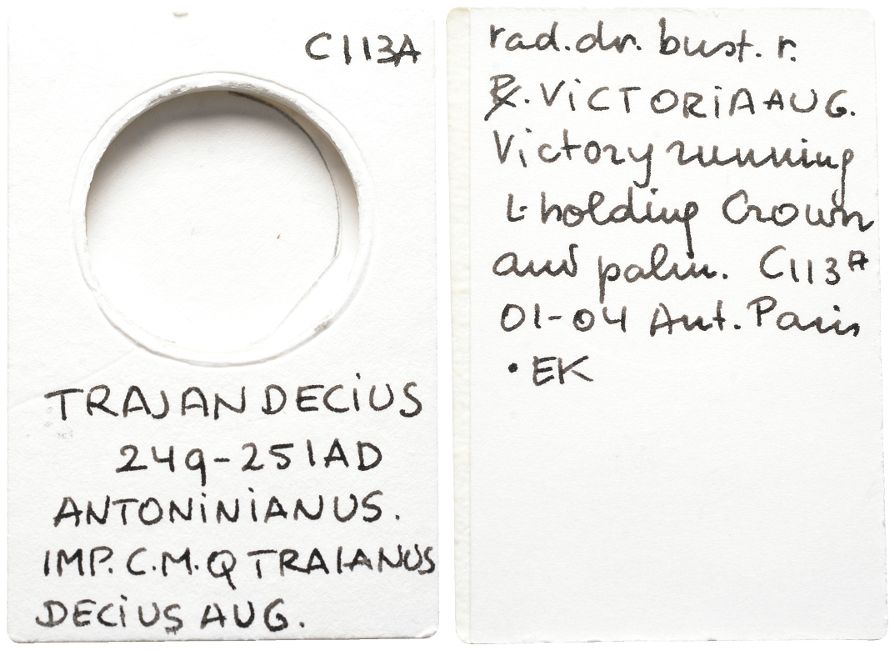 C113A
TRAJAN DECiUS
249-251AD
ANTONiNiANUS.
IMP. C.M.Q TRAIANUS
DECiUS AUG.
rad. dr. bust. r.
℞. ViCTORiA AUG.
Victory running
L. holding Crown
and palm. C113A
01-04 Ant. Paris
• EK